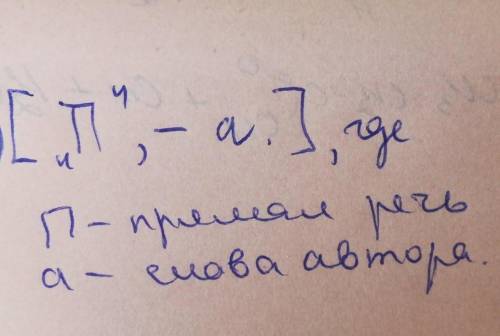 [„П“, – а.], где
П – прямая речь
а – слова автора.